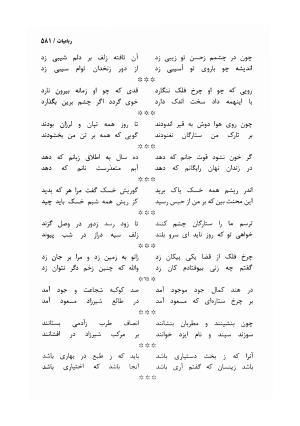 رباعیات / ۵۸۱
چون در چشمم زحسن تو زیبی زد آن تافته زلف بر دلم شیبی زد
اندیشه چو باروی تو آسیبی زد از دور زنخدان توام سیبی زد
***
رویی که چو او چرخ فلک ننگارد قدی که چو او زمانه بیرون نارد
با اینهمه داد سخت اندک دارد خوی گردد اگر چشم برین بگذارد
***
چون روی هوا دوش به قیر اندودند تا روز همه تپان و لرزان بودند
بر تارک من ستارگان نغنودند گویی که همه بر تن من بخشودند
***
گر خون نشود قوت جانم که دهد ده سال به اطلاق زیانم که دهد
در زندان نهان رایگانم که دهد آیم متعذرست نانم که دهد
***
اندر ریشم همه خسک باک برید گوریش خسک گفت مرا هر که بدید
این محنت بین که بر من از حبس رسید کز ریش همه شبم خسک باید چید
***
ترسم ما را ستارگان چشم کنند تا زود رسد زدور در وصل گزند
خواهی تو که روز ناید ای سرو بلند زلف سیه دراز در شب پیوند
***
چرخ فلک از قضا یکی پیکان زد زانو به زمین زد و مرا بر جان زد
گفتم چه زنی بیوفتادم کان زد والله که چنین زخم دگر نتوان زد
***
در هند کمال جود موجود آمد صد کوکبه شجاعت و جود آمد
بر چرخ ستاره‌ای که مسعود آمد در طالع شیرزاد مسعود آمد
***
چون بنشینند و مطربان بنشانند انصاف طرب زآدمی بستانند
سوزند سپند و نام ایزد خوانند بر مرکب شیرزاد در افشانند
***
آنرا که ز بخت دستیاری باشد باید که ز طبع در بهاری باشد
باشد زینسان که گفتم آری باشد آنجا باشد که اختیاری باشد
***